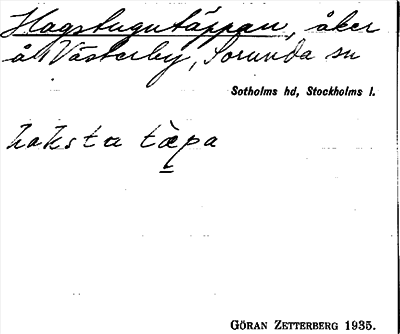 Hagstugutäppan, åker
å Västerby, Sorunda sn
Sotholms hd, Stockholms l.
haksta tæ̀pa
GÖRAN ZETTERBERG 1935.